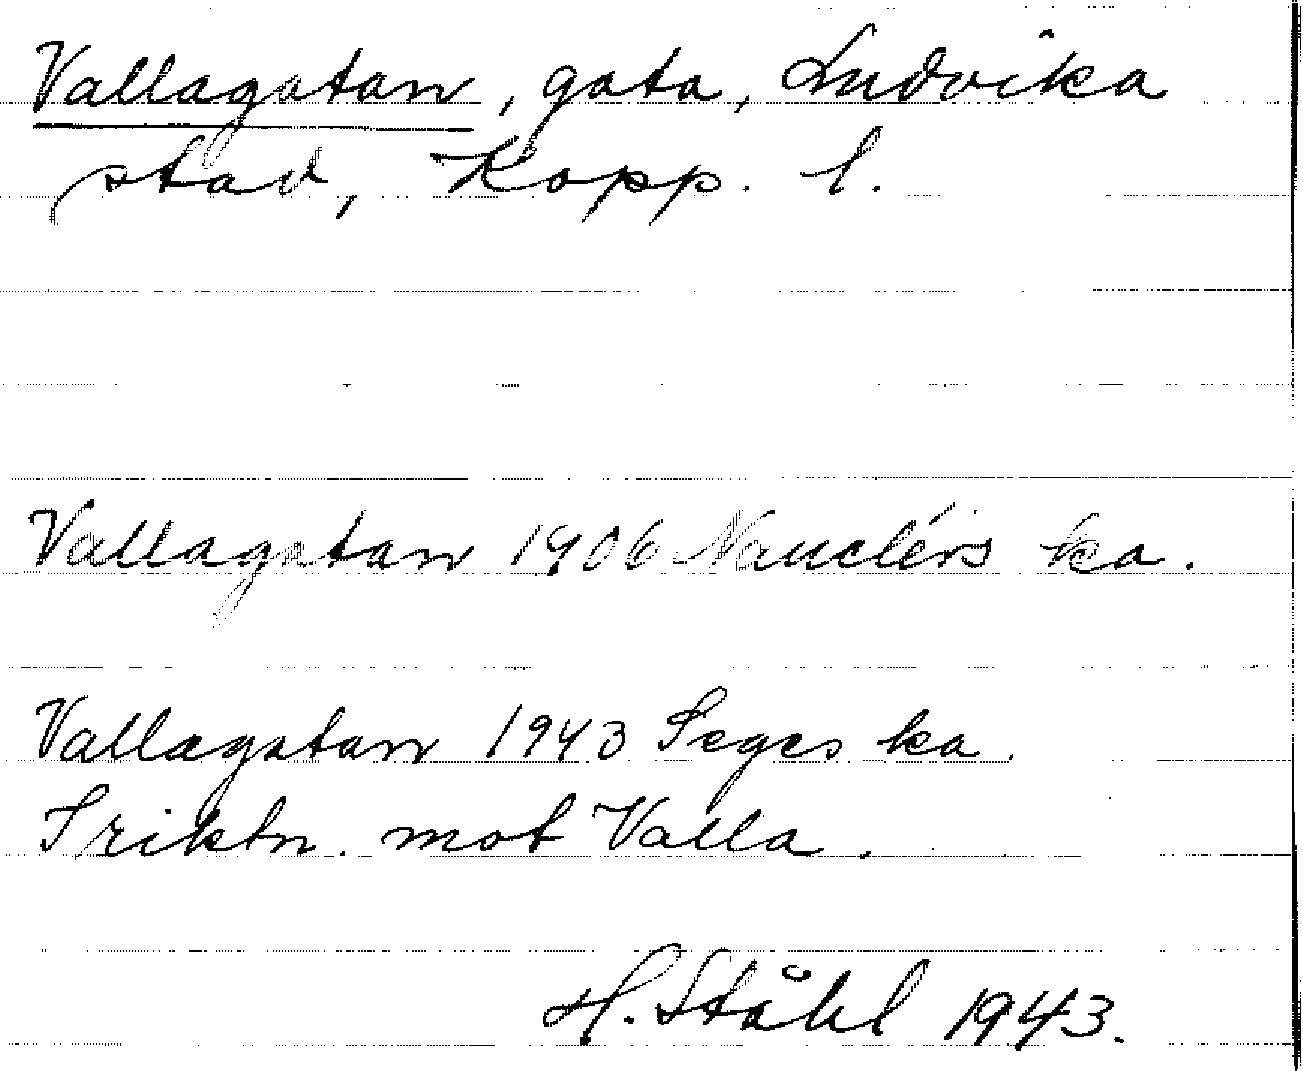 Vallagatan, gata, Ludvika
stad, Kopp. l.
Vallagatan 1906 Nauclérs ka.
Vallagatan 1943 Seges ka.
I riktn. mot Valla.
H. Ståhl 1943.